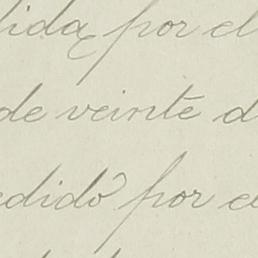 lida por el
de veinte d
edido por e